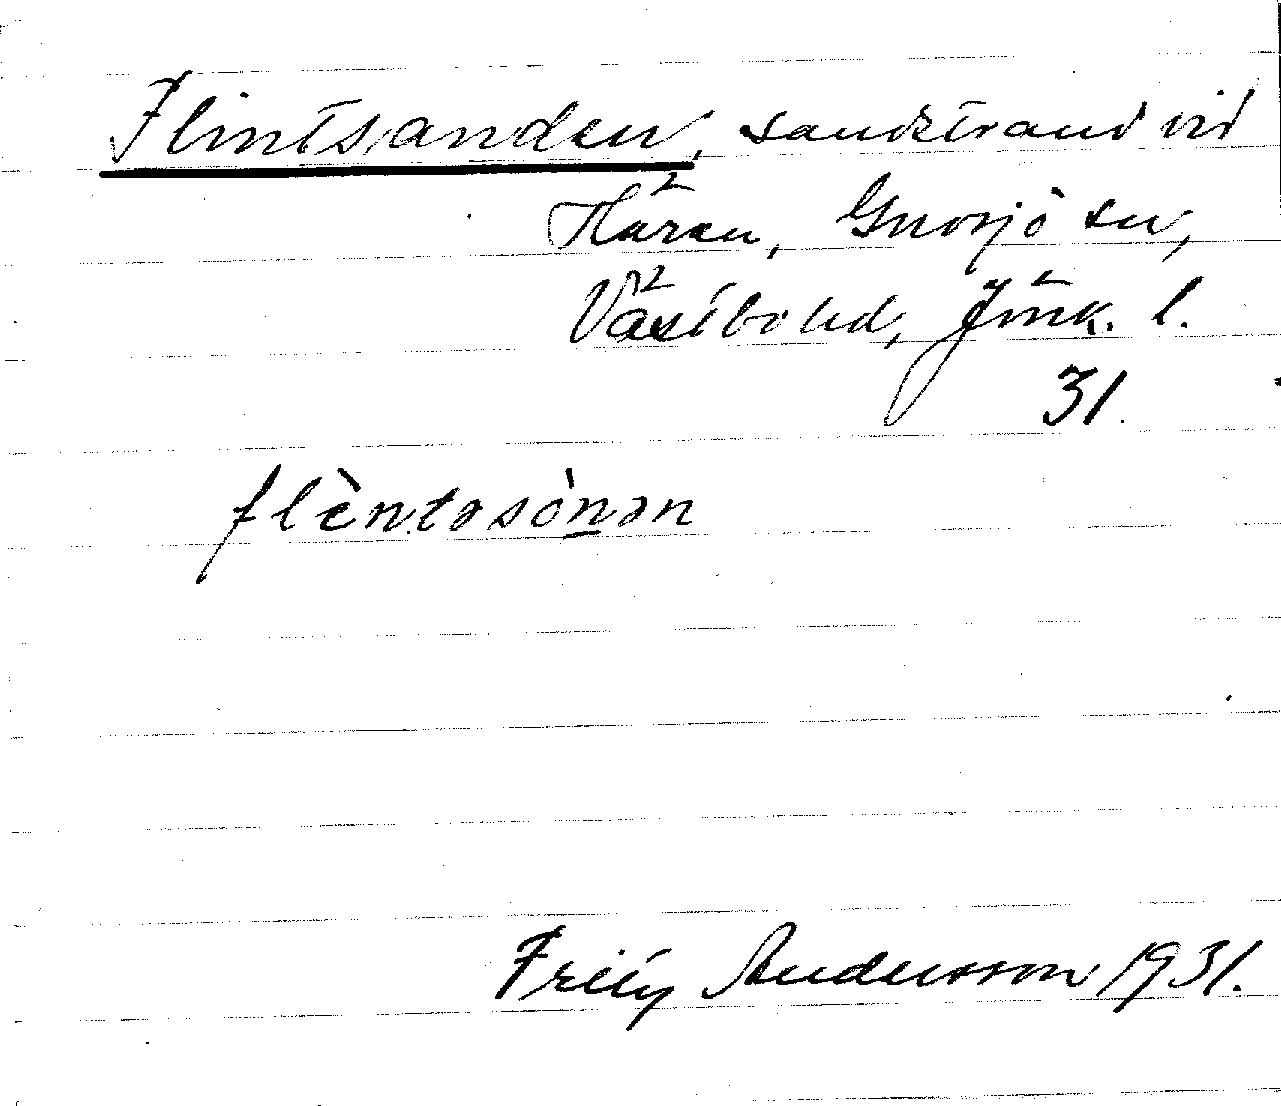 Flintsanden, sandstrand vid
Hären, Gnosjö sn,
Västbo hd, Jönk. l.
31.
flèntəsònən
Fritz Andersson 1931.